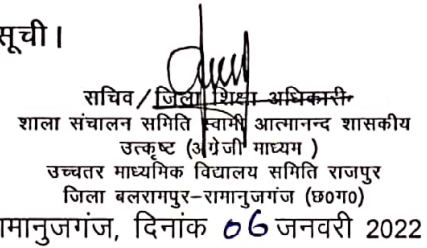 सूची।
सचिव / जिला शिक्षा अधिकारी
शाला संचालन समिति स्वामी आत्मानन्द शासकीय
उत्कृष्ट (अंग्रेजी माध्यम )
उच्चतर माध्यमिक विद्यालय समिति राजपुर
जिला बलरामपुर–रामानुजगंज (छ०ग०)
रामानुजगंज, दिनांक 06 जनवरी 2022